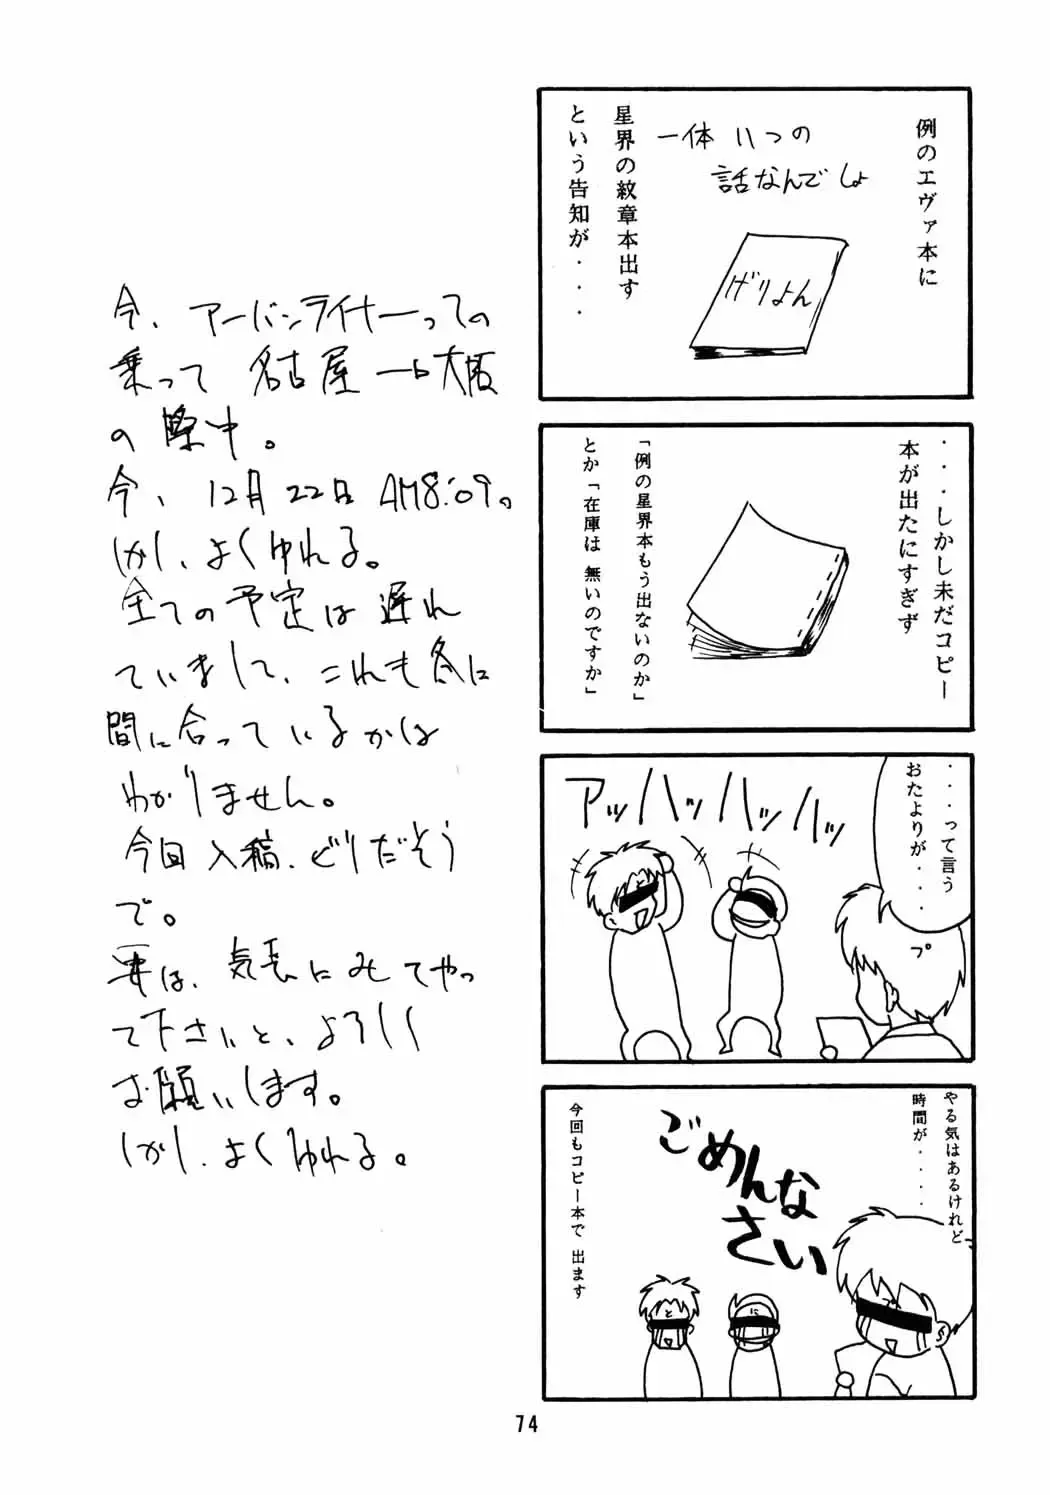 例のエヴァ本に
一体いつの
話なんでしょ
げりよん
星界の紋章本出す
という告知が・・・・
・・・しかし未だコピー
本が出たにすぎず
「例の星界本もう出ないのか」
とか「在庫は 無いのですか」
・・・って言う
おたよりが・・・・
プ
アッハッハッハッ
と
やる気はあるけれど
時間が・・・・・
ごめんな
さい
プ
と
に
今回もコピー本で 出ます
今、アーバンライナーっての
乗って 名古屋→大阪
の際中。
今、12月22日AM8:09。
しかし、よくゆれる。
全ての予定は遅れ
ていまして、これも冬に
間に合っているかは
わかりません。
今回入稿、どりだそう
で。
要は、気長にみてやっ
て下さいと、よろしく
お願いします。
しかし、よくゆれる。
74